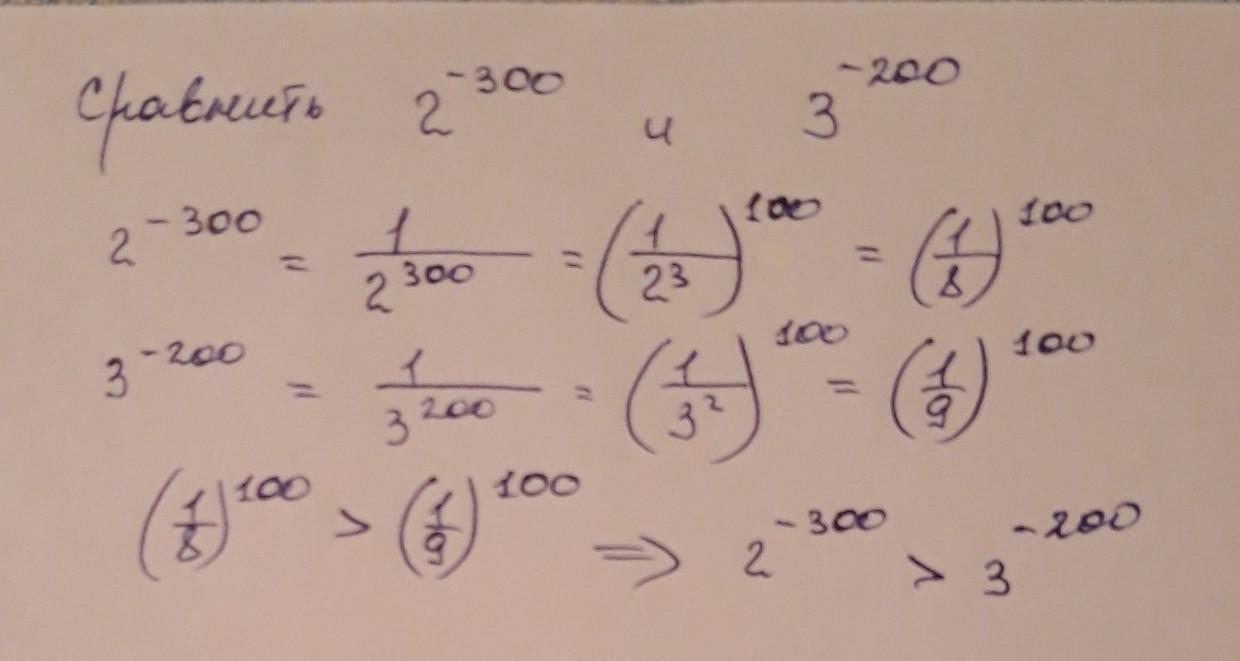 Сравнить 2^-300 и 3^-200
2^-300 = 1/2^300 = (1/2^3)^100 = (1/8)^100
3^-200 = 1/3^200 = (1/3^2)^100 = (1/9)^100
(1/8)^100 > (1/9)^100 ⇒ 2^-300 > 3^-200